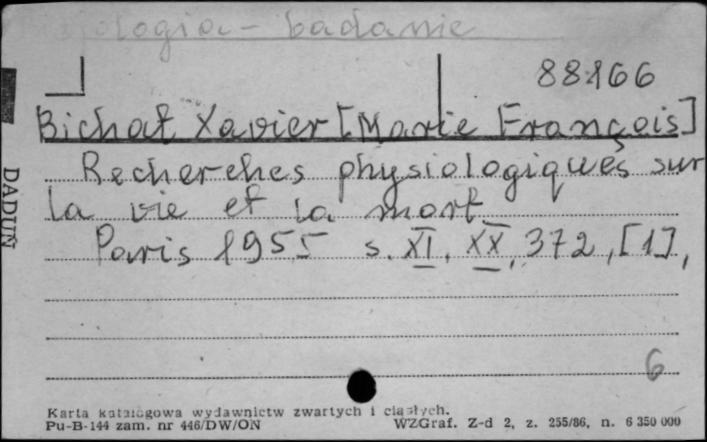 Fizjologia - badanie
88166
Bichat Xavier [Marie François]
Recherches physiologiques sur
la vie et la mort
Paris 1955 s. XI, XX, 372, [1],
6
DADUŃ
Karta katalogowa wydawnictw zwartych i ciągłych.
Pu-B-144 zam. nr 446/DW/ON WZGraf. Z-d 2, z. 255/86, n. 6 350 000